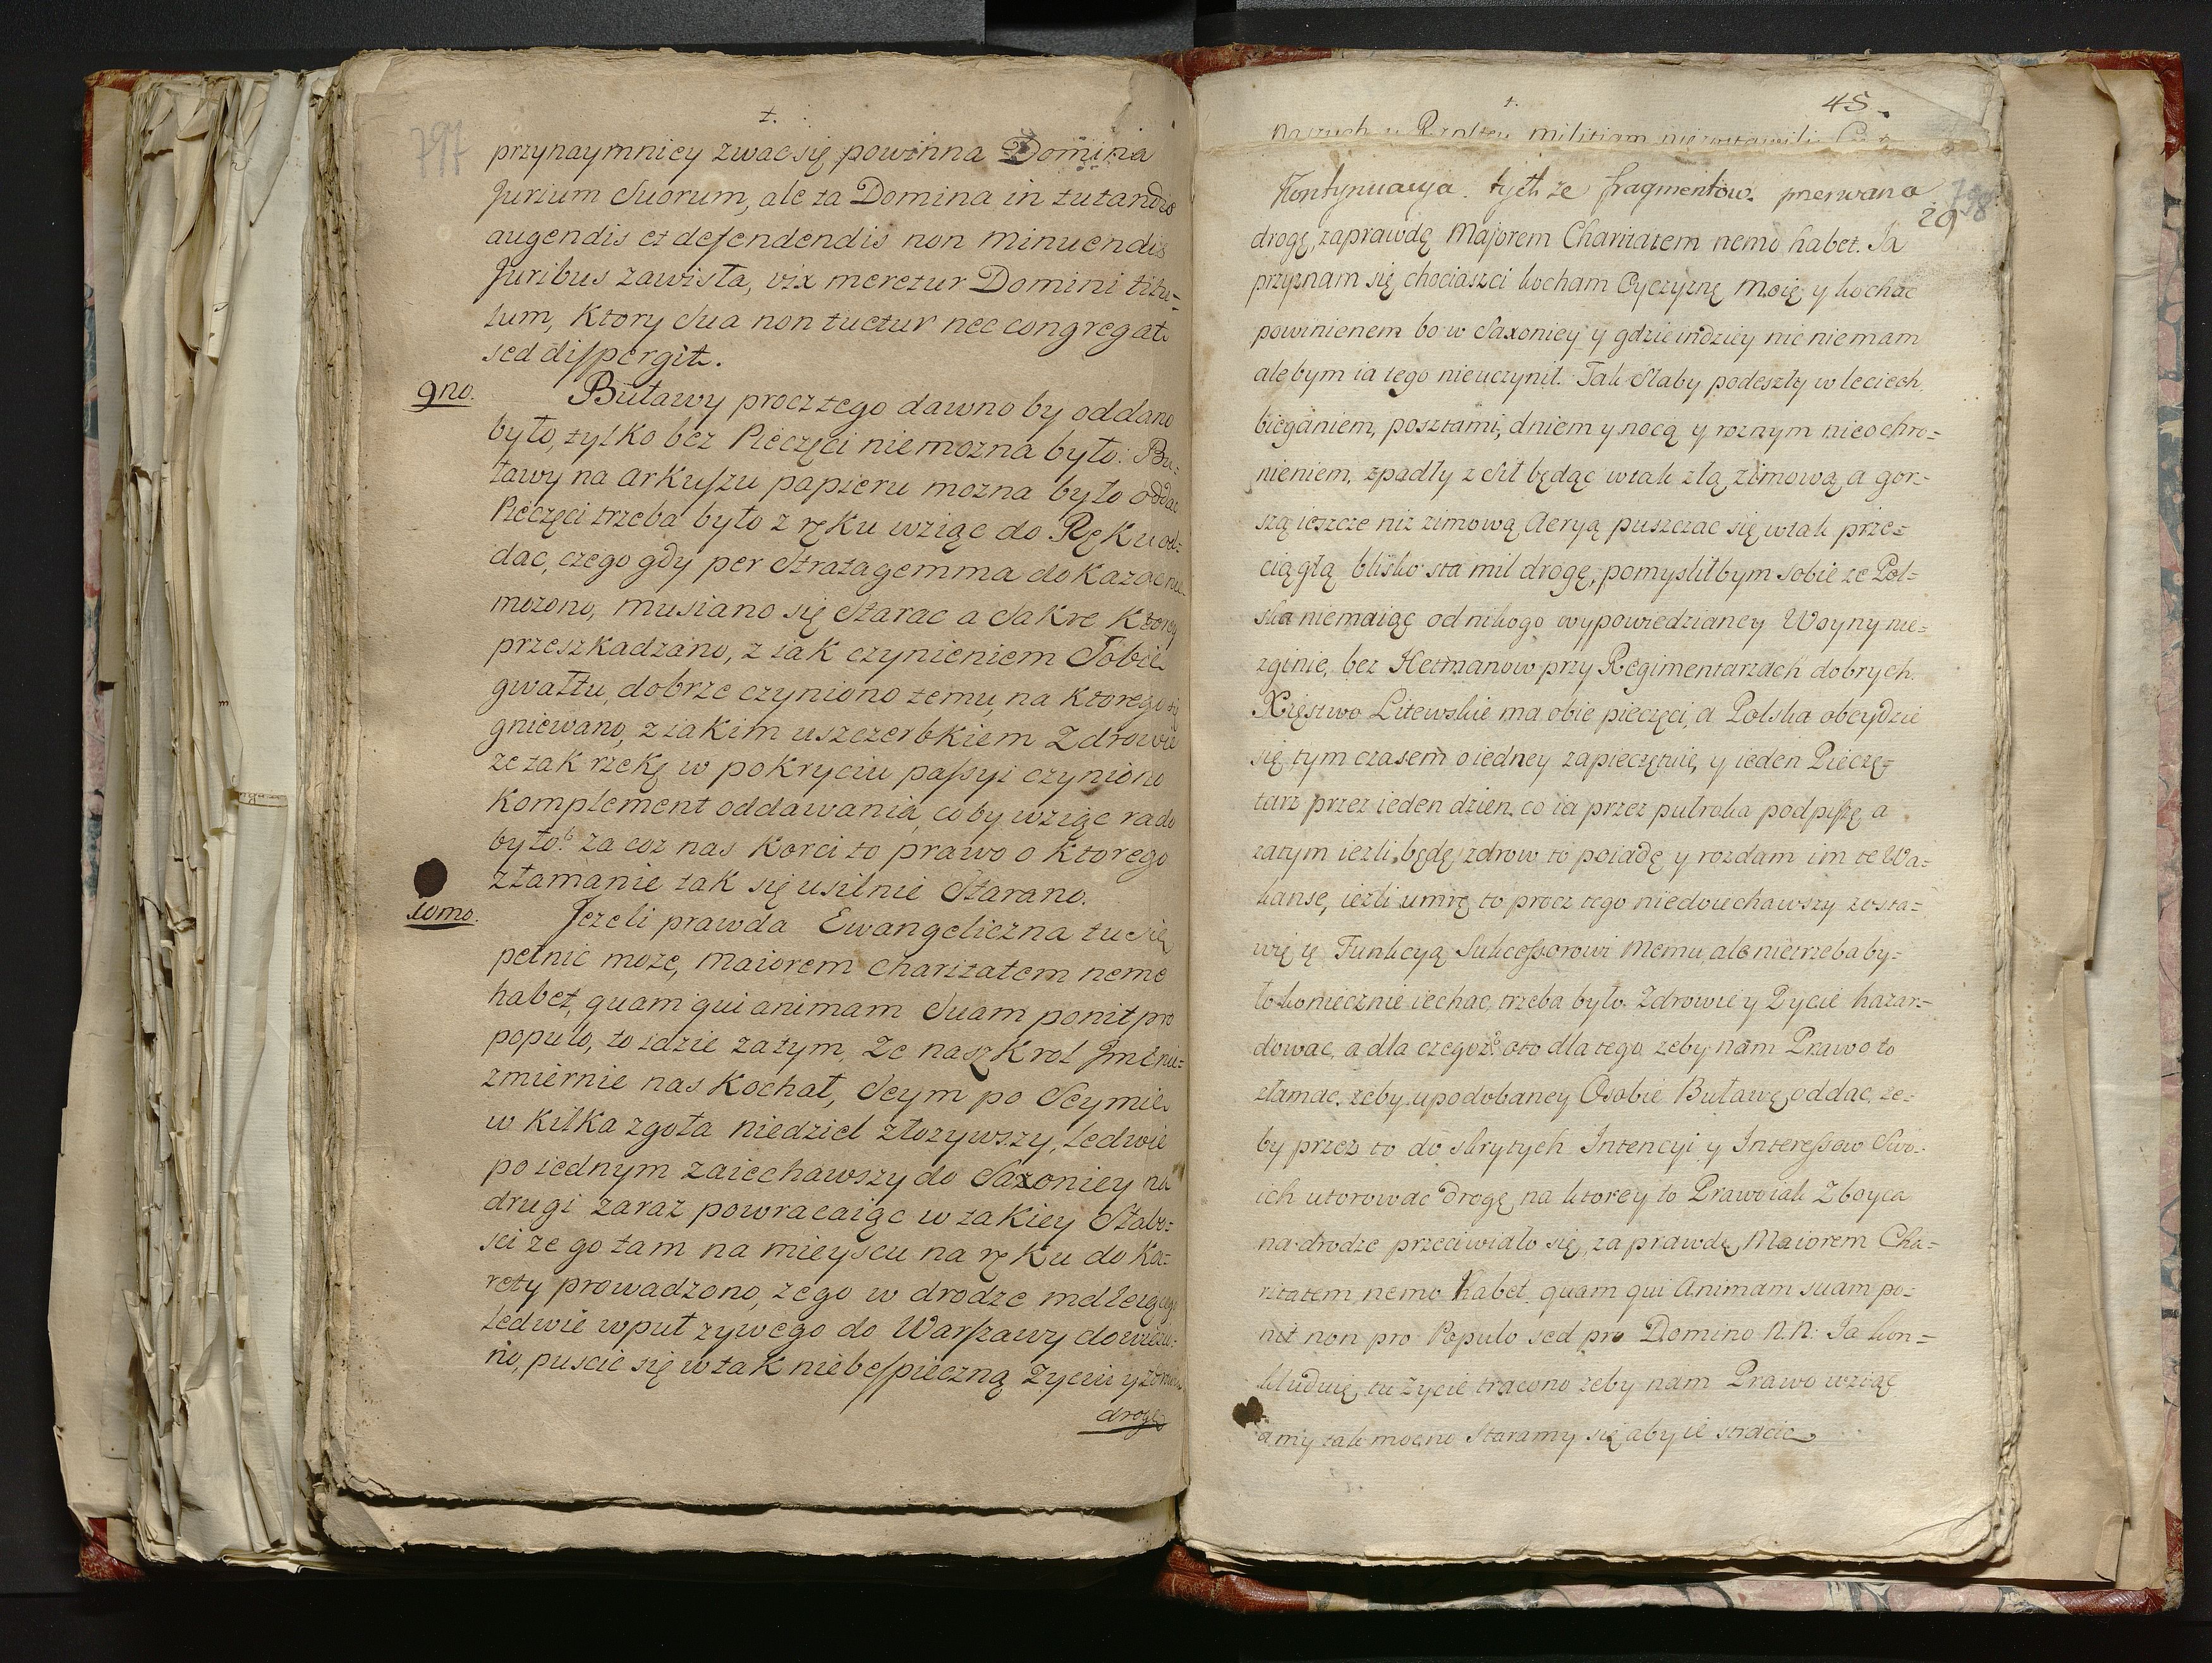 797
†.
przynaymniey zwac się powinna Domina
Jurium Suorum, ale ta Domina in tutandis
augendis et defendendis non minuendis
Juribus zawisła, vix meretur Domini titu-
lum, Ktory Sua non tuetur nec congregat
sed dispergit.
9no. Buławy procz tego dawno by oddano
było, tylko bez Pieczęci niemozna było: Bu-
ławy na arkuszu papieru mozna było oddac
Pieczęci trzeba było z ręku wziąc do Ręku od-
dac, czego gdy per Stratagemma dokazac nie
mozono, musiano się Starac a Sakre Ktorey
przeszkadzano, z iak czynieniem Sobie
gwałtu, dobrze czyniono temu, na Ktorego się
gniewano, z iakim uszczerbkiem Zdrowia
ze tak rzekę w pokryciu passyi czyniono
Komplement oddawania, co by wziąc rado
było? za coz nas Korci to prawo o Ktorego
złamanie tak się usilnie Starano.
10mo. Jezeli prawda Ewangeliczna tu się
pełnic moze, maiorem charitatem nemo
habet, quam qui animam Suam ponit pro
populo, to idzie zatym, Ze nasz Krol Jmc nie-
zmiernie nas Kochał, Seym po Seymie
w Kilka zgoła niedziel złozywszy, Ledwie
po iednym zaiechawszy do Saxoniey na
drugi zaraz powracaiąc w takiey Słabo-
sci ze go tam na mieyscu na ręku do Ka-
rety prowadzono, ze go w drodze mdleiącego
Ledwie wpuł zywego do Warszawy dowiezio-
no, puscic się w tak niebespieczną Zyciu y Zdrowiu
drogę
†.
45.
naszych u Rzpltey militiam niezostawili
Kontynuacya tych ze fragmentow. przerwana
798
29
drogę, zaprawdę Majorem Charitatem nemo habet. Ja
przyznam się chociaszci kocham Oyczyznę moię y kochac
powinienem bo w Saxoniey y gdzieindziey nic niemam
ale bym ia tego nieuczynił. Tak Słaby podeszły w leciech
bieganiem, posztami, dniem y nocą y roznym nieochro-
nieniem, zpadły z Sił będąc w tak złą zimową, a gor-
szą ieszcze niz zimową Aeryą puszczac się w tak prze-
ciągłą blisko sta mil drogę, pomyslił bym sobie ze Pol-
ska niemaiąc od nikogo wypowiedzianey Woyny nie-
zginie, bez Hetmanow przy Regimentarzach dobrych.
Xięstwo Litewskie ma obie pieczęci, a Polska obeydzie
się tym czasem o iedney zapieczętuie, y ieden Pieczę-
tarz przez ieden dzien, co ia przez pułroka podpiszę, a
zatym iezli będę zdrow to poiadę y rozdam im te Wa-
kanse, iezli umrę to procz tego niedouchawszy zosta-
wię tę Funkcyą Sukcessorowi memu, ale nietrzeba by-
ło koniecznie iechac, trzeba było Zdrowie y Zycie hazar-
dowac, a dla czegoz? oto dla tego zeby nam Prawo to
złamac, zeby upodobaney Osobie Buławę oddac, ze-
by przez to do skrytych Intencyi y Interessow Swo-
ich utorowac drogę, na ktorey to Prawo iak Zboyca
na drodze przeciwiało się, zaprawdę Maiorem Cha-
ritatem nemo habet quam qui Animam suam po-
nit non pro Populo sed pro Domino N.N: Ja kon-
kluduię, tu Zycie tracono zeby nam Prawo wziąc
a my tak mocno Staramy się aby ie stracic